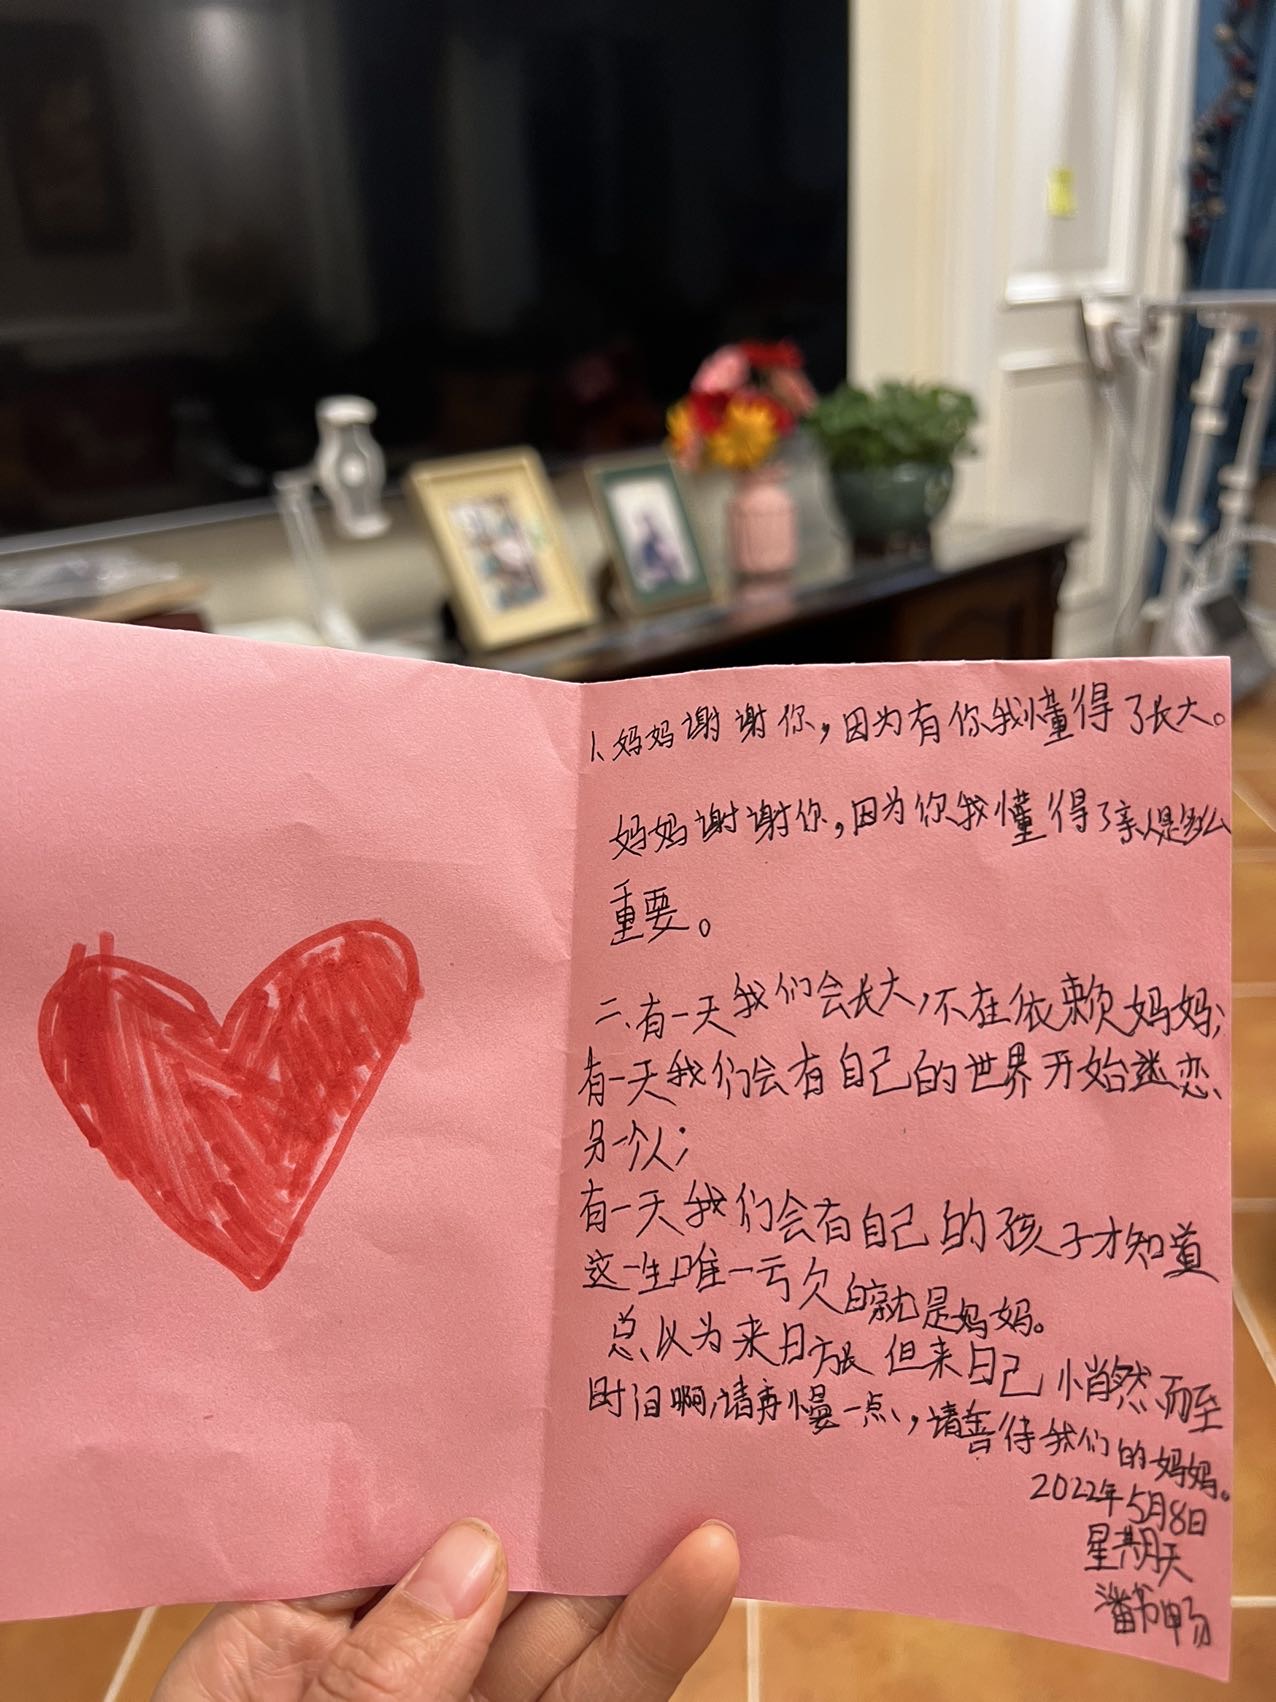 1、妈妈谢谢你,因为有你我懂得了长大。
妈妈谢谢你,因为你我懂得了亲人是多么
重要。
二、有一天我们会长大,不在依赖妈妈;
有一天我们会有自己的世界开始迷恋
另一个人;
有一天我们会有自己的孩子才知道
这一生唯一亏欠的就是妈妈。
总以为来日方长 但来日己悄然而至
时间啊,请再慢一点,请善待我们的妈妈。
2022年5月8日
星期天
潘书畅